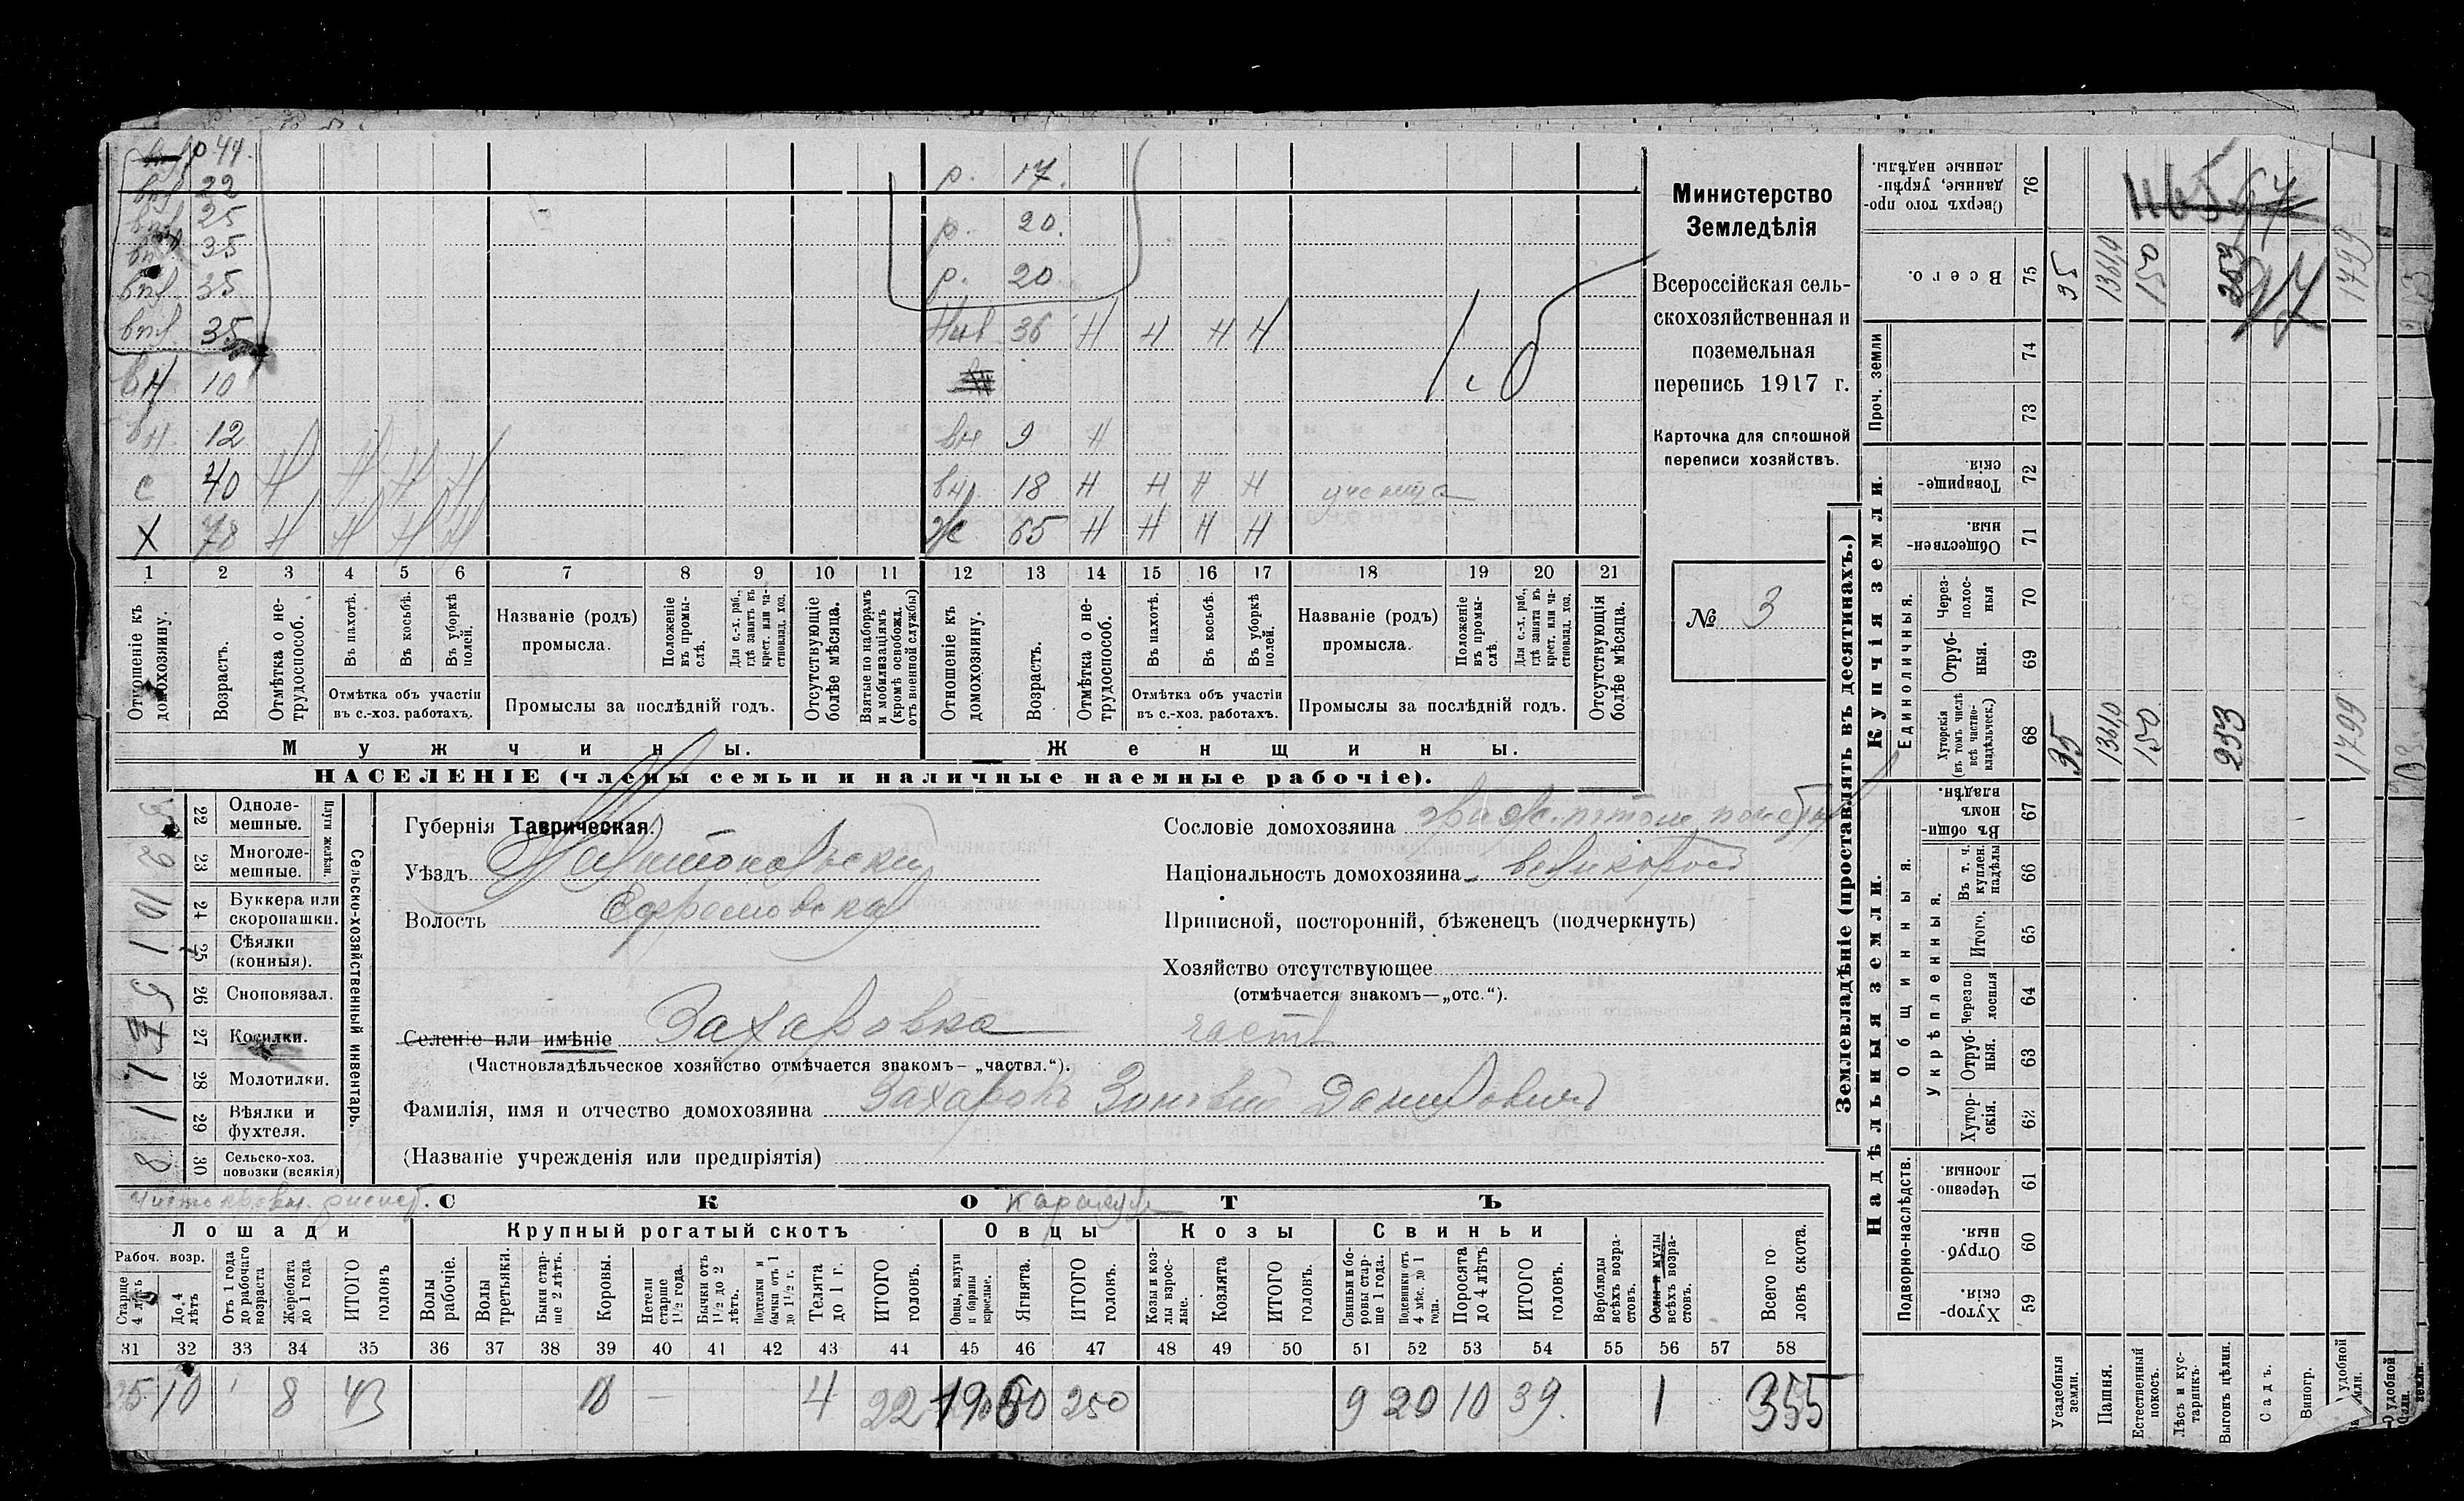 р 44.
впл 22
впл 25
35
впл 35
впл 35
вн 10
вн. 12
с 40 н н н н
х 78 н н н н
р. 17.
р. 20.
р. 20
36 н н н н
вн 9 н
вн. 18 н н н н ученица
ж 65 н н н н
1 2 3 4 5 6 7 8 9 10 11 12 13 14 15 16 17 18 19 20 21
Отношеніе къ домохозяину.
Возрастъ.
Отмѣтка о не-трудоспособ.
Въ пахотѣ.
Въ косьбѣ.
Въ уборкѣ полей.
Отмѣтка объ участіи въ с.-хоз. работахъ.
Названіе (родъ) промысла.
Положеніе въ промы-слѣ.
Для с.-х. раб., гдѣ занятъ въ крест. или ча-стновлад. хоз.
Промыслы за послѣдній годъ.
Отсутствующіе болѣе мѣсяца.
Взятые по наборамъ и мобилизаціямъ (кромѣ освобожд. отъ военной службы)
Отношеніе къ домохозяину.
Возрастъ.
Отмѣтка о не-трудоспособ.
Въ пахотѣ.
Въ косьбѣ.
Въ уборкѣ полей.
Отмѣтка объ участіи въ с.-хоз. работахъ.
Названіе (родъ) промысла.
Положеніе въ промы-слѣ.
Для с.-х. раб., гдѣ занятъ въ крест. или ча-стновлад. хоз.
Промыслы за послѣдній годъ.
Отсутствующія болѣе мѣсяца.
Мужчины.
Женщины.
НАСЕЛЕНІЕ (члены семьи и наличные наемные рабочіе).
Министерство
Земледѣлія
Всероссійская сель-
скохозяйственная и
поземельная
перепись 1917 г.
Карточка для сплошной
переписи хозяйствъ.
№ 3
22 Однолемешные.
23 Многолемешные.
Плуги желѣзн.
24 Буккера или скоропашки.
25 Сѣялки (конныя).
26 Сноповязал.
27 Косилки.
28 Молотилки.
29 Вѣялки и фухтеля.
30 Сельско-хоз. повозки (всякія)
Сельско-хозяйственный инвентарь.
Губернія Таврическая.
Уѣздъ
Волость Ефремовская
Селеніе или имѣніе Захаровка частв
(Частновладѣльческое хозяйство отмѣчается знакомъ— „частвл.“).
Фамилія, имя и отчество домохозяина Захаровъ Зиновій Даниловичъ
(Названіе учрежденія или предпріятія)
Сословіе домохозяина
Національность домохозяина великоросъ
Приписной, посторонній, бѣженецъ (подчеркнуть)
Хозяйство отсутствующее
(отмѣчается знакомъ—„отс.“).
СКОТЪ
каракуль
Лошади
Крупный рогатый скотъ
Овцы
Козы
Свиньи
Рабоч. возр.
Старше 4 лѣтъ
До 4 лѣтъ
Отъ 1 года до рабочаго возраста
Жеребята до 1 года
ИТОГО головъ
Волы рабочіе.
Волы третьяки.
Быки стар-ше 2 лѣтъ.
Коровы.
Нетели старше 1½ года.
Бычки отъ 1½ до 2 лѣтъ.
Подтелки и бычки отъ 1 до 1½ г.
Телята до 1 г.
ИТОГО головъ.
Овцы, валухи и бараны взрослые.
Ягнята.
ИТОГО головъ.
Козы и коз-лы взрос-лые.
Козлята
ИТОГО головъ.
Свиньи и бо-ровы стар-ше 1 года.
Подсвинки отъ 4 мѣс. до 1 года.
Поросята до 4 лѣтъ
ИТОГО головъ.
Верблюды всѣхъ возра-стовъ.
Ослы и мулы всѣхъ возра-стовъ.
Всего го-ловъ скота.
31 32 33 34 35 36 37 38 39 40 41 42 43 44 45 46 47 48 49 50 51 52 53 54 55 56 57 58
25 10 8 43 18 4 22 250 9 20 10 39. 1 355
Землевладѣніе (проставлять въ десятинахъ.)
Купчія земли.
Надѣльныя земли.
Сверхъ того про-данные, укрѣп-ленные надѣлы. 76
Всего. 75
Проч. земли 74 73
Товарище-скія. 72
Обществен-ныя. 71
Единоличныя.
Через-полос-ныя 70
Отруб-ныя. 69
Хуторскія (въ томъ числѣ всѣ частно-владѣльческ.) 68
Общинныя.
Въ общин-номъ владѣн. 67
Укрѣпленныя.
Въ т. ч. куплен. надѣлы 66
Итого. 65
Черезпо-лосныя 64
Отруб-ныя. 63
Хутор-скія. 62
Подворно-наслѣдств.
Черезпо-лосныя. 61
Отруб-ныя. 60
Хутор-скія. 59
Усадебныя земли. 35 35
Пашня. 1361,0 1361,0
Естественный покосъ. 150 150
Лѣсъ и кус-тарникъ.
Выгонъ цѣлин. 253 253
Садъ.
Виногр.
удобной 1799 1799